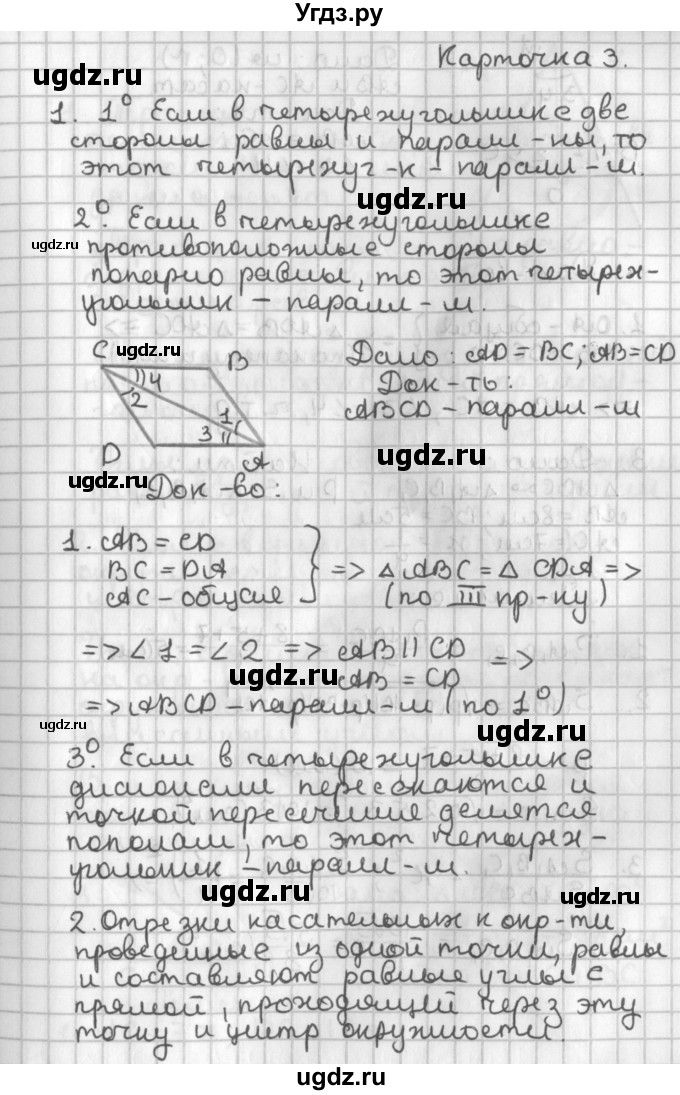 Угдз.ру
ugdz.ru
Карточка 3.
1. 1⁰ Если в четырехугольнике две
стороны равны и паралл-ны, то
этот четырехуг-к - паралл-м.
ugdz.ru
2⁰. Если в четырехугольнике
ugdz.ru
противоположные стороны
попарно равны, то этот четырех-
угольник - паралл-м.
ugdz.ru
C B
4
2
1
3
D A
Дано: AD = BC; AB = CD
Док-ть:
ABCD - паралл-м
ugdz.ru
ugdz.ru
Док-во:
1. AB = CD
BC = DA
AC - общая
} => △ABC = △CDA =>
(по III пр-ку)
=> ∠1 = ∠2 => AB || CD
AB = CD
=>
ugdz.ru
=> ABCD - паралл-м (по 1⁰)
ugdz.ru
3⁰. Если в четырехугольнике
диагонали пересекаются и
точкой пересечения делятся
пополам, то этот четырех-
угольник - паралл-м.
ugdz.ru
ugdz.ru
2. Отрезки касательных к окр-ти,
проведенные из одной точки, равны
и составляют равные углы с
прямой, проходящей через эту
точку и центр окружности.
ugdz.ru
ugdz.ru